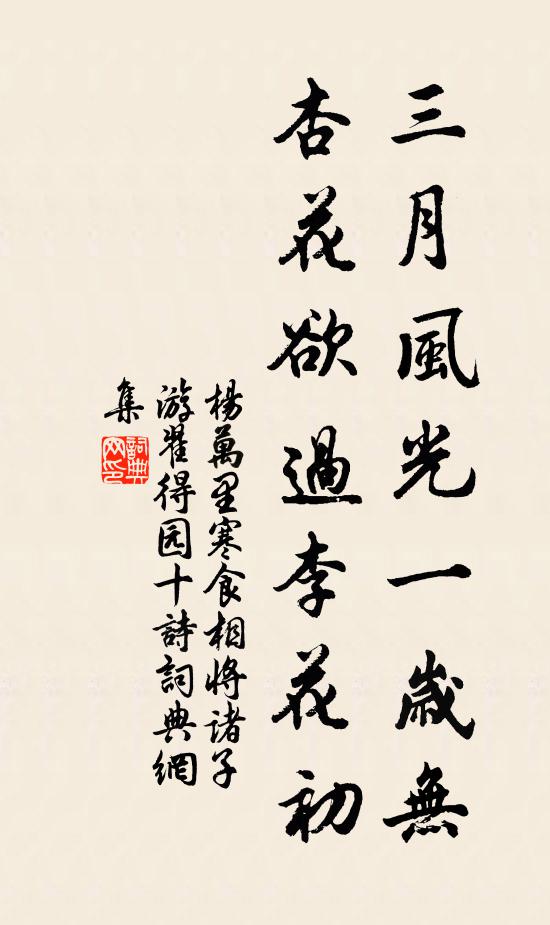 三月風光一歲無
杏花欲過李花初
楊萬里寒食相將諸子
游翟得园十詩詞典網
集
詞典
网印